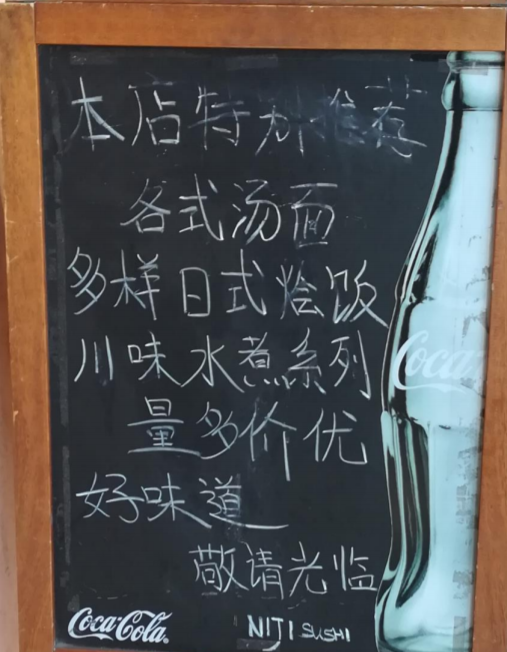 本店特别推荐
各式汤面
多样日式烩饭
川味水煮系列
量多价优
好味道
敬请光临
Coca-Cola
Coca-Cola
NIJI SUSHI